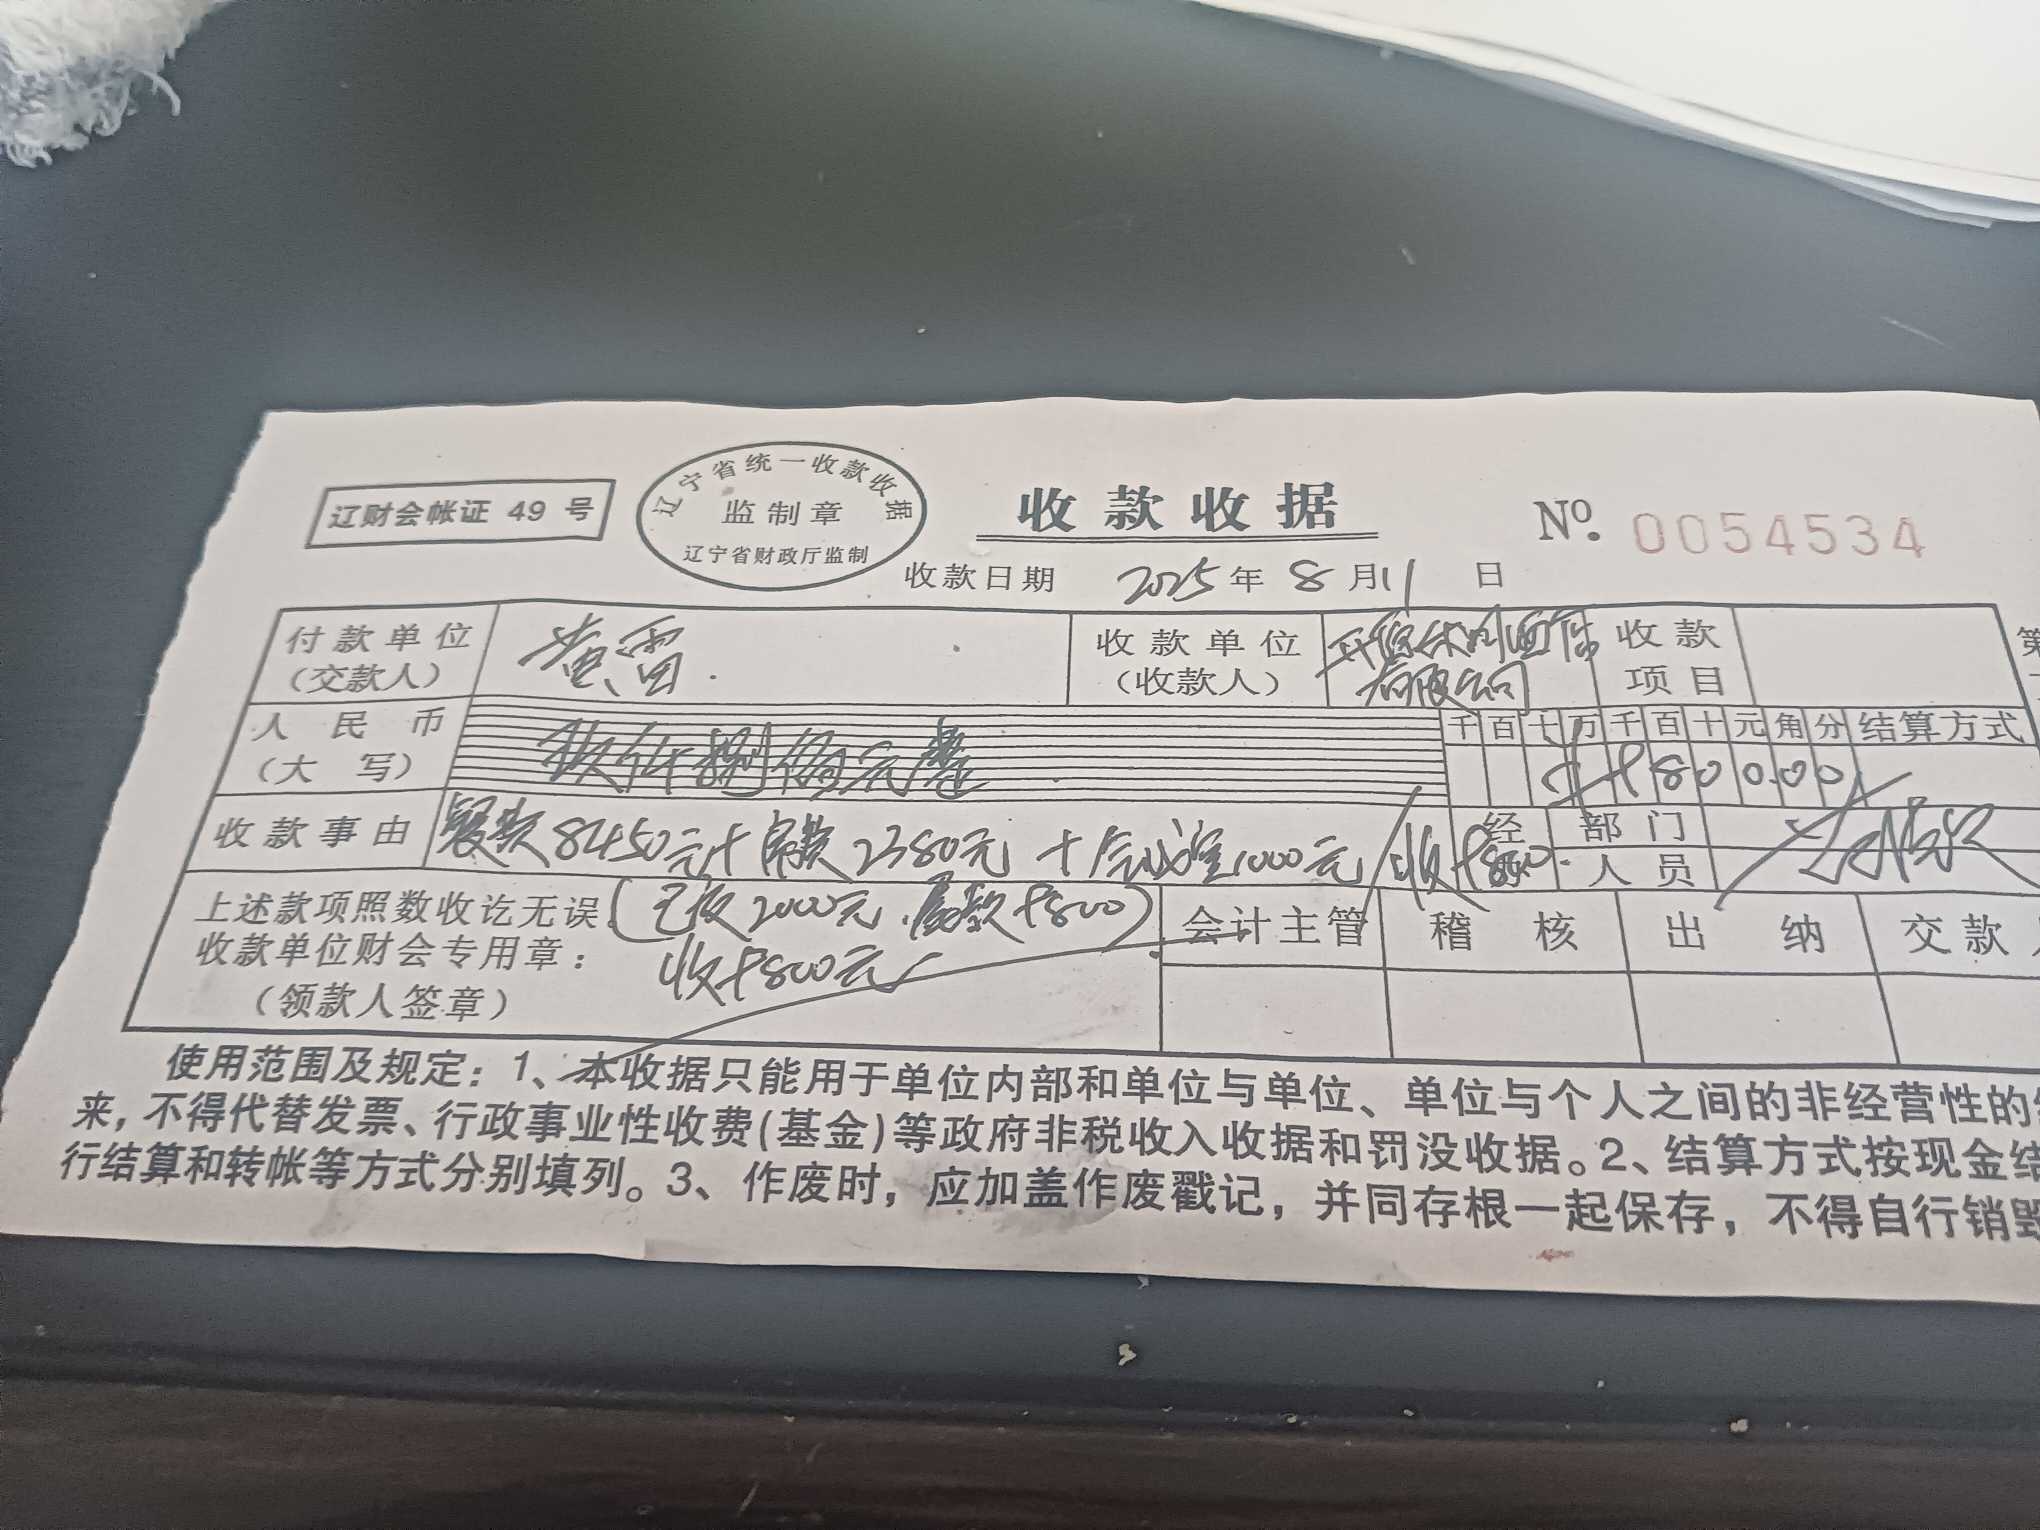 辽财会帐证 49 号
辽宁省统一收款收据
监制章
辽宁省财政厅监制
收款收据
No. 0054534
收款日期 2025年 8月11日
付款单位 黄雷 收款单位 有限公司 收款
(交款人) (收款人) 项目
人民币 玖仟捌佰元整 千百十万千百十元角分 结算方式
(大写) ¥9800.00
收款事由 餐款8450元+房款2380元+会议室1000元 收9800. 经 部门
人员
上述款项照数收讫无误 (已收2000元、尾款9800) 会计主管 稽核 出纳 交款
收款单位财会专用章: 收9800元
(领款人签章)
使用范围及规定: 1、本收据只能用于单位内部和单位与单位、单位与个人之间的非经营性的
来,不得代替发票、行政事业性收费(基金)等政府非税收入收据和罚没收据。2、结算方式按现金结
行结算和转帐等方式分别填列。3、作废时,应加盖作废戳记,并同存根一起保存,不得自行销毁